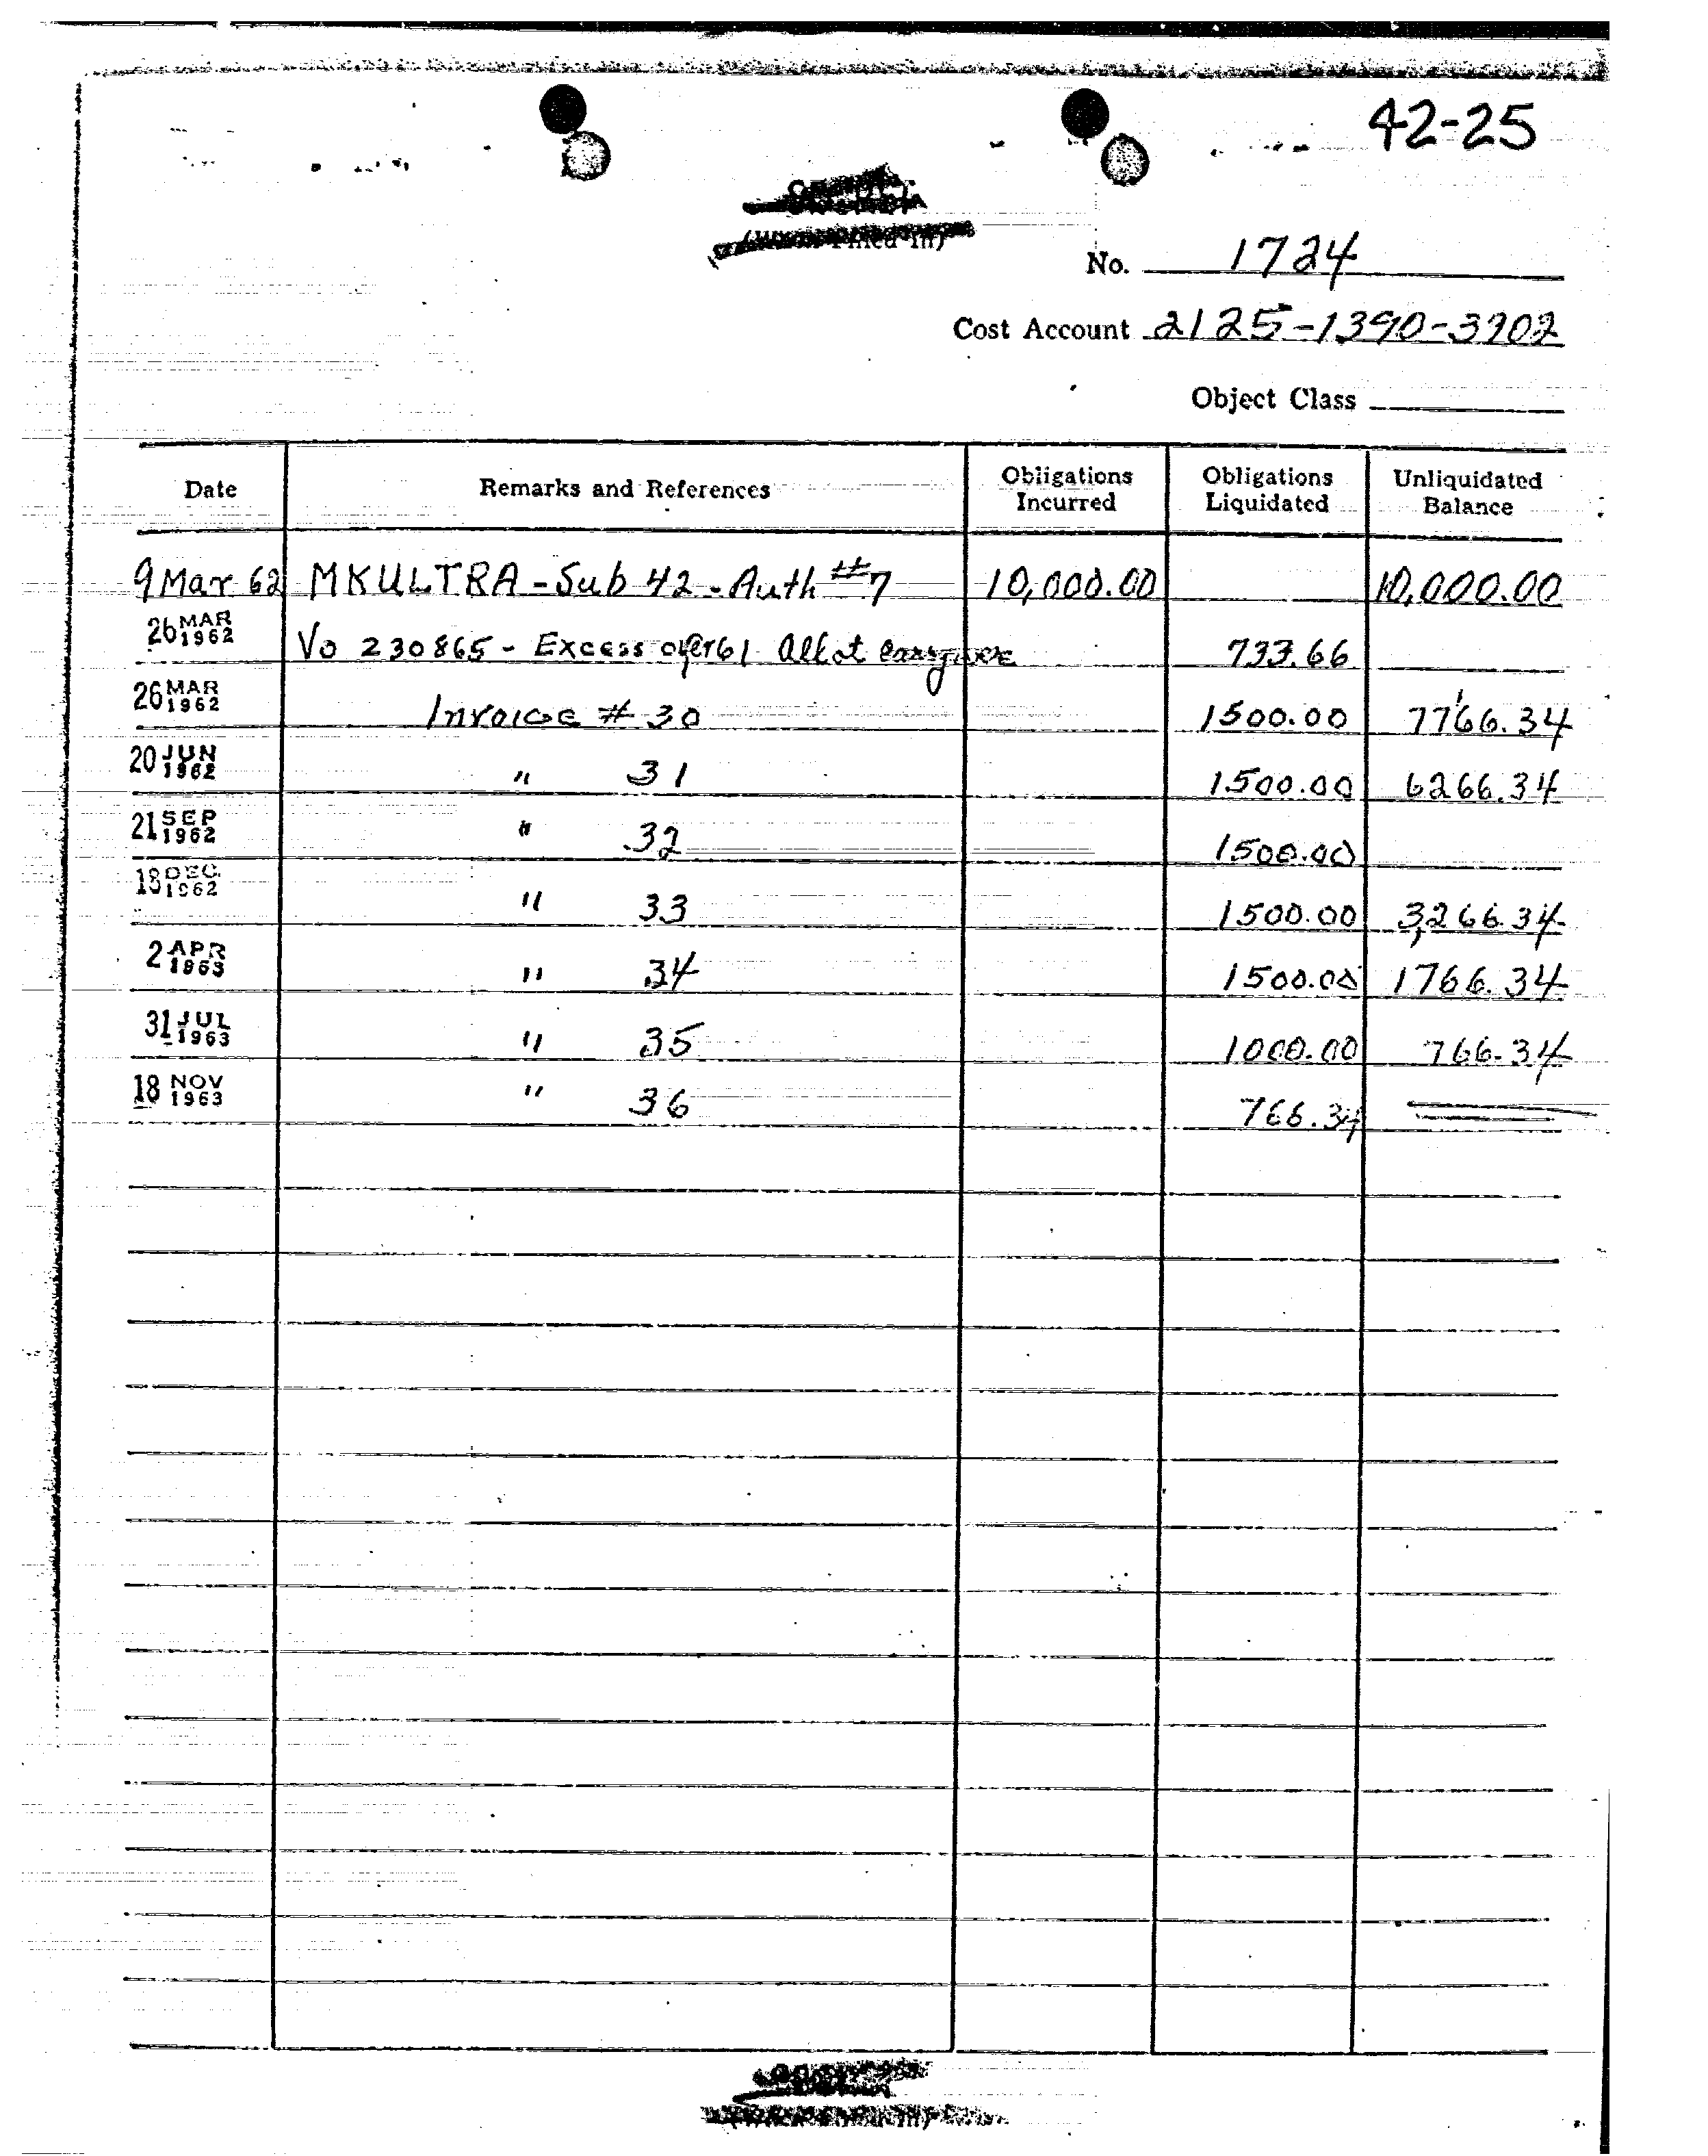 42-25
Filled In)
No. 1724
Cost Account 2125-1390-3902
Object Class
Date Remarks and References Obligations Incurred Obligations Liquidated Unliquidated Balance
9 Mar 62 MKULTRA - Sub 42 - Auth #7 10,000.00 10,000.00
26 MAR 1962 Vo 230865 - Excess over 61 Allot 733.66
26 MAR 1962 Invoice # 30 1500.00 7766.34
20 JUN 1962 " 31 1500.00 6266.34
21 SEP 1962 " 32 1500.00
DEC 1962 " 33 1500.00 3,266.34
2 APR 1963 " 34 1500.00 1766.34
31 JUL 1963 " 35 1000.00 766.34
18 NOV 1963 " 36 766.34